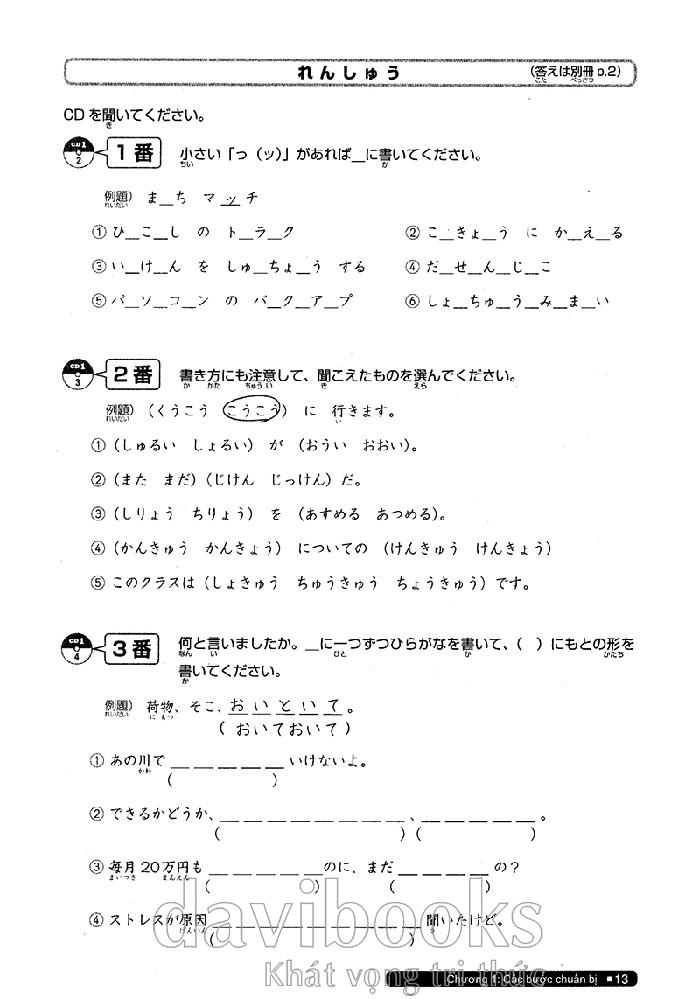 れんしゅう (答えは別冊 p.2)
こた べっさつ
CDを聞いてください。
き
CD1 2 1番 小さい「っ（ッ）」があれば＿に書いてください。
ちい か
例題) ま＿ち マッチ
れいだい
① ひ＿こ＿し の ト＿ラ＿ク ② こ＿きょ＿う に か＿え＿る
③ い＿け＿ん を しゅ＿ちょ＿う する ④ だ＿せ＿ん＿じ＿こ
⑤ パ＿ソ＿コ＿ン の バ＿ク＿ア＿プ ⑥ しょ＿ちゅ＿う＿み＿ま＿い
CD1 3 2番 書き方にも注意して、聞こえたものを選んでください。
か かた ちゅうい き えら
例題) （くうこう こうこう） に 行きます。
れいだい い
① （しゅるい しょるい） が （おうい おおい）。
② （また まだ）（じけん じっけん）だ。
③ （しりょう ちりょう） を （あすめる あつめる）。
④ （かんきゅう かんきょう） についての （けんきゅう けんきょう）
⑤ このクラスは（しょきゅう ちゅうきゅう ちょうきゅう）です。
CD1 4 3番 何と言いましたか。＿に一つずつひらがなを書いて、（ ）にもとの形を
なん い ひと か かたち
書いてください。
か
例題) 荷物、そこ、おいといて。
れいだい にもつ
（おいておいて）
① あの川で ＿ ＿ ＿ ＿ ＿ いけないよ。
かわ
（ ）
② できるかどうか、＿ ＿ ＿ ＿ ＿ ＿ ＿ ＿、＿ ＿ ＿ ＿ ＿。
（ ）（ ）
③ 毎月20万円も ＿ ＿ ＿ ＿ ＿ のに、まだ ＿ ＿ ＿ ＿ の？
まいつき まんえん
（ ） （ ）
④ ストレスが原因 ＿ ＿ ＿ ＿ ＿ ＿ ＿ ＿ 聞いたけど。
げんいん き
（ ）
davibooks
Khát vọng tri thức
Chương 1: Các bước chuẩn bị ■ 13